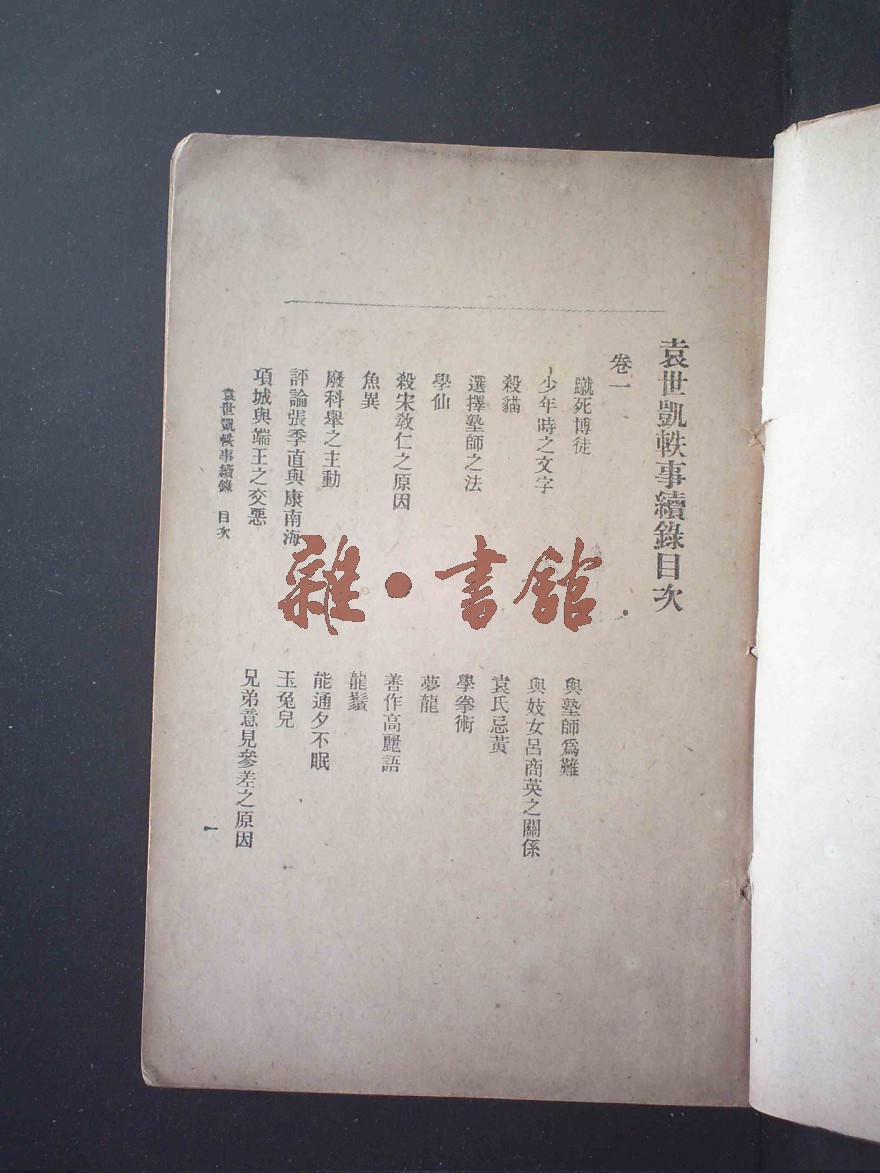 袁世凱軼事續錄目次
卷一
蹴死博徒
與塾師爲難
少年時之文字
與妓女呂商英之關係
殺貓
袁氏忌黃
選擇塾師之法
學拳術
學仙
夢龍
殺宋敎仁之原因
善作高麗語
魚異
龍鬚
廢科舉之主動
能通夕不眠
評論張季直與康南海
玉兔兒
項城與端王之交惡
兄弟意見參差之原因
袁世凱軼事續錄 目次
一
雜·書館